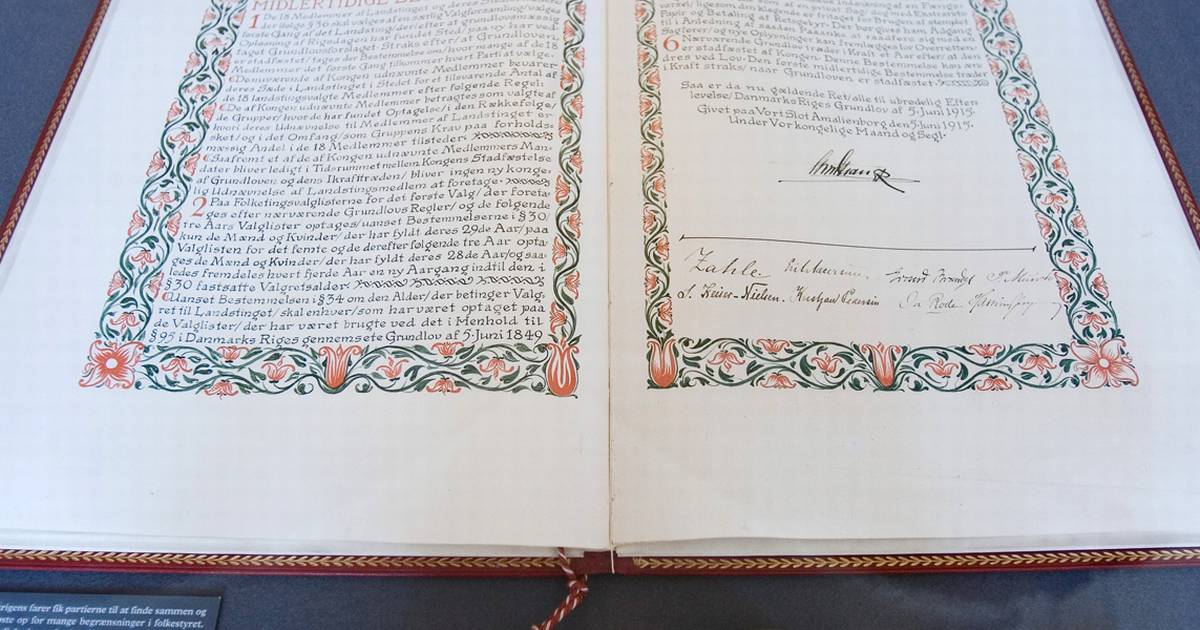 MIDLERTIDIGE
1 De 18 Medlemmer af Landstinget og deres
ifølge §36 skal vælges af en særlig Valgforsamling/vælges
første Gang af det Landsting/der efter at grundlovmæssig
Opløsning af Rigsdagen har fundet Sted/paany har ved-
taget Grundlovsforslaget. Straks efter/at Grundloven
er stadfæstet/tages der Bestemmelse om/hvor mange af de 18
Medlemmer det første Gang tilkommer hvert Parti at vælge.
De nuværende af Kongen udnævnte Medlemmer bevarer
deres Sæde i Landstinget i Stedet for et tilsvarende Antal af
de 18 landstingsvalgte Medlemmer efter følgende Regel:
De af Kongen udnævnte Medlemmer betragtes som valgte af
de Grupper/hvor de har fundet Optagelse/i den Rækkefølge/
hvori deres Udnævnelse til Medlemmer af Landstinget er
sket/og i det Omfang/som Gruppens Krav paa forholds-
mæssig Andel i de 18 Medlemmer tilsteder
Saafremt et af de af Kongen udnævnte Medlemmers Man-
dater bliver ledigt i Tidsrummet mellem Kongens Stadfæstelse
af Grundloven og dens Ikrafttræden/bliver ingen ny konge-
lig Udnævnelse af Landstingsmedlem at foretage.
2 Paa Folketingsvalglisterne for det første Valg/der foreta-
ges efter nærværende Grundlovs Regler/og de følgende
tre Aars Valglister optages/uanset Bestemmelserne i §30/
kun de Mænd og Kvinder/der har fyldt deres 29de Aar/paa
Valglisten for det femte og de derefter følgende tre Aar opta-
ges de Mænd og Kvinder/der har fyldt deres 28de Aar/og saa-
ledes fremdeles hvert fjerde Aar en ny Aargang indtil den i
§30 fastsatte Valgretsalder.
Uanset Bestemmelsen i §34 om den Alder/der betinger Valg-
ret til Landstinget/skal enhver/som har været optaget paa
de Valglister/der har været brugte ved det i Menhold til
§95 i Danmarks Riges gennemsete Grundlov af 5. Juni 1849
Papir og Betaling af Retsgebyr. Der bør gives ham Adgang
til i Anledning af Paaanke at
Sagfører/og nye Oplysninger kan fremlægges for Overretten.
6 Nærværende Grundlov træder i Kraft et Aar efter at den
er stadfæstet af Kongen. Denne Bestemmelse kan æn-
dres ved Lov. Den første midlertidige Bestemmelse træder
i Kraft straks/naar Grundloven er stadfæstet.
Saa er da nu gældende Ret/alle til ubrødelig Efter-
levelse/Danmarks Riges Grundlov af 5. Juni 1915.
Givet paa Vort Slot Amalienborg den 5. Juni 1915.
Under Vor kongelige Haand og Segl.
Christian R
Zahle. Edv. Brandes P. Munch
J. Hassing-Jørgensen
Ove Rode
rigens farer fik partierne til at finde sammen og
op for mange begrænsninger i folkestyret.